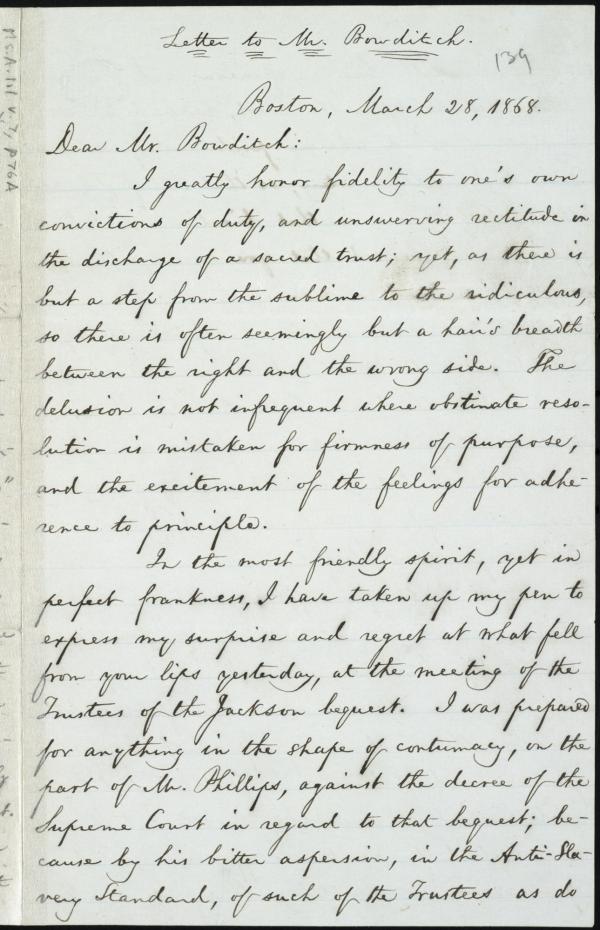 Letter to Mr. Bowditch.
139
Boston, March 28, 1868.
Dear Mr. Bowditch:
I greatly honor fidelity to one's own
convictions of duty, and unswerving rectitude in
the discharge of a sacred trust; yet, as there is
but a step from the sublime to the ridiculous,
so there is often seemingly but a hair's breadth
between the right and the wrong side. The
delusion is not infrequent where obstinate reso-
lution is mistaken for firmness of purpose,
and the excitement of the feelings for adhe-
rence to principle.
In the most friendly spirit, yet in
perfect frankness, I have taken up my pen to
express my surprise and regret at what fell
from your lips yesterday, at the meeting of the
Trustees of the Jackson bequest. I was prepared
for anything in the shape of contumacy, on the
part of Mr. Phillips, against the decree of the
Supreme Court in regard to that bequest; be-
cause by his bitter aspersion, in the Anti-Sla-
very Standard, of such of the Trustees as do
Ms.A.1.1 v.7, p76A